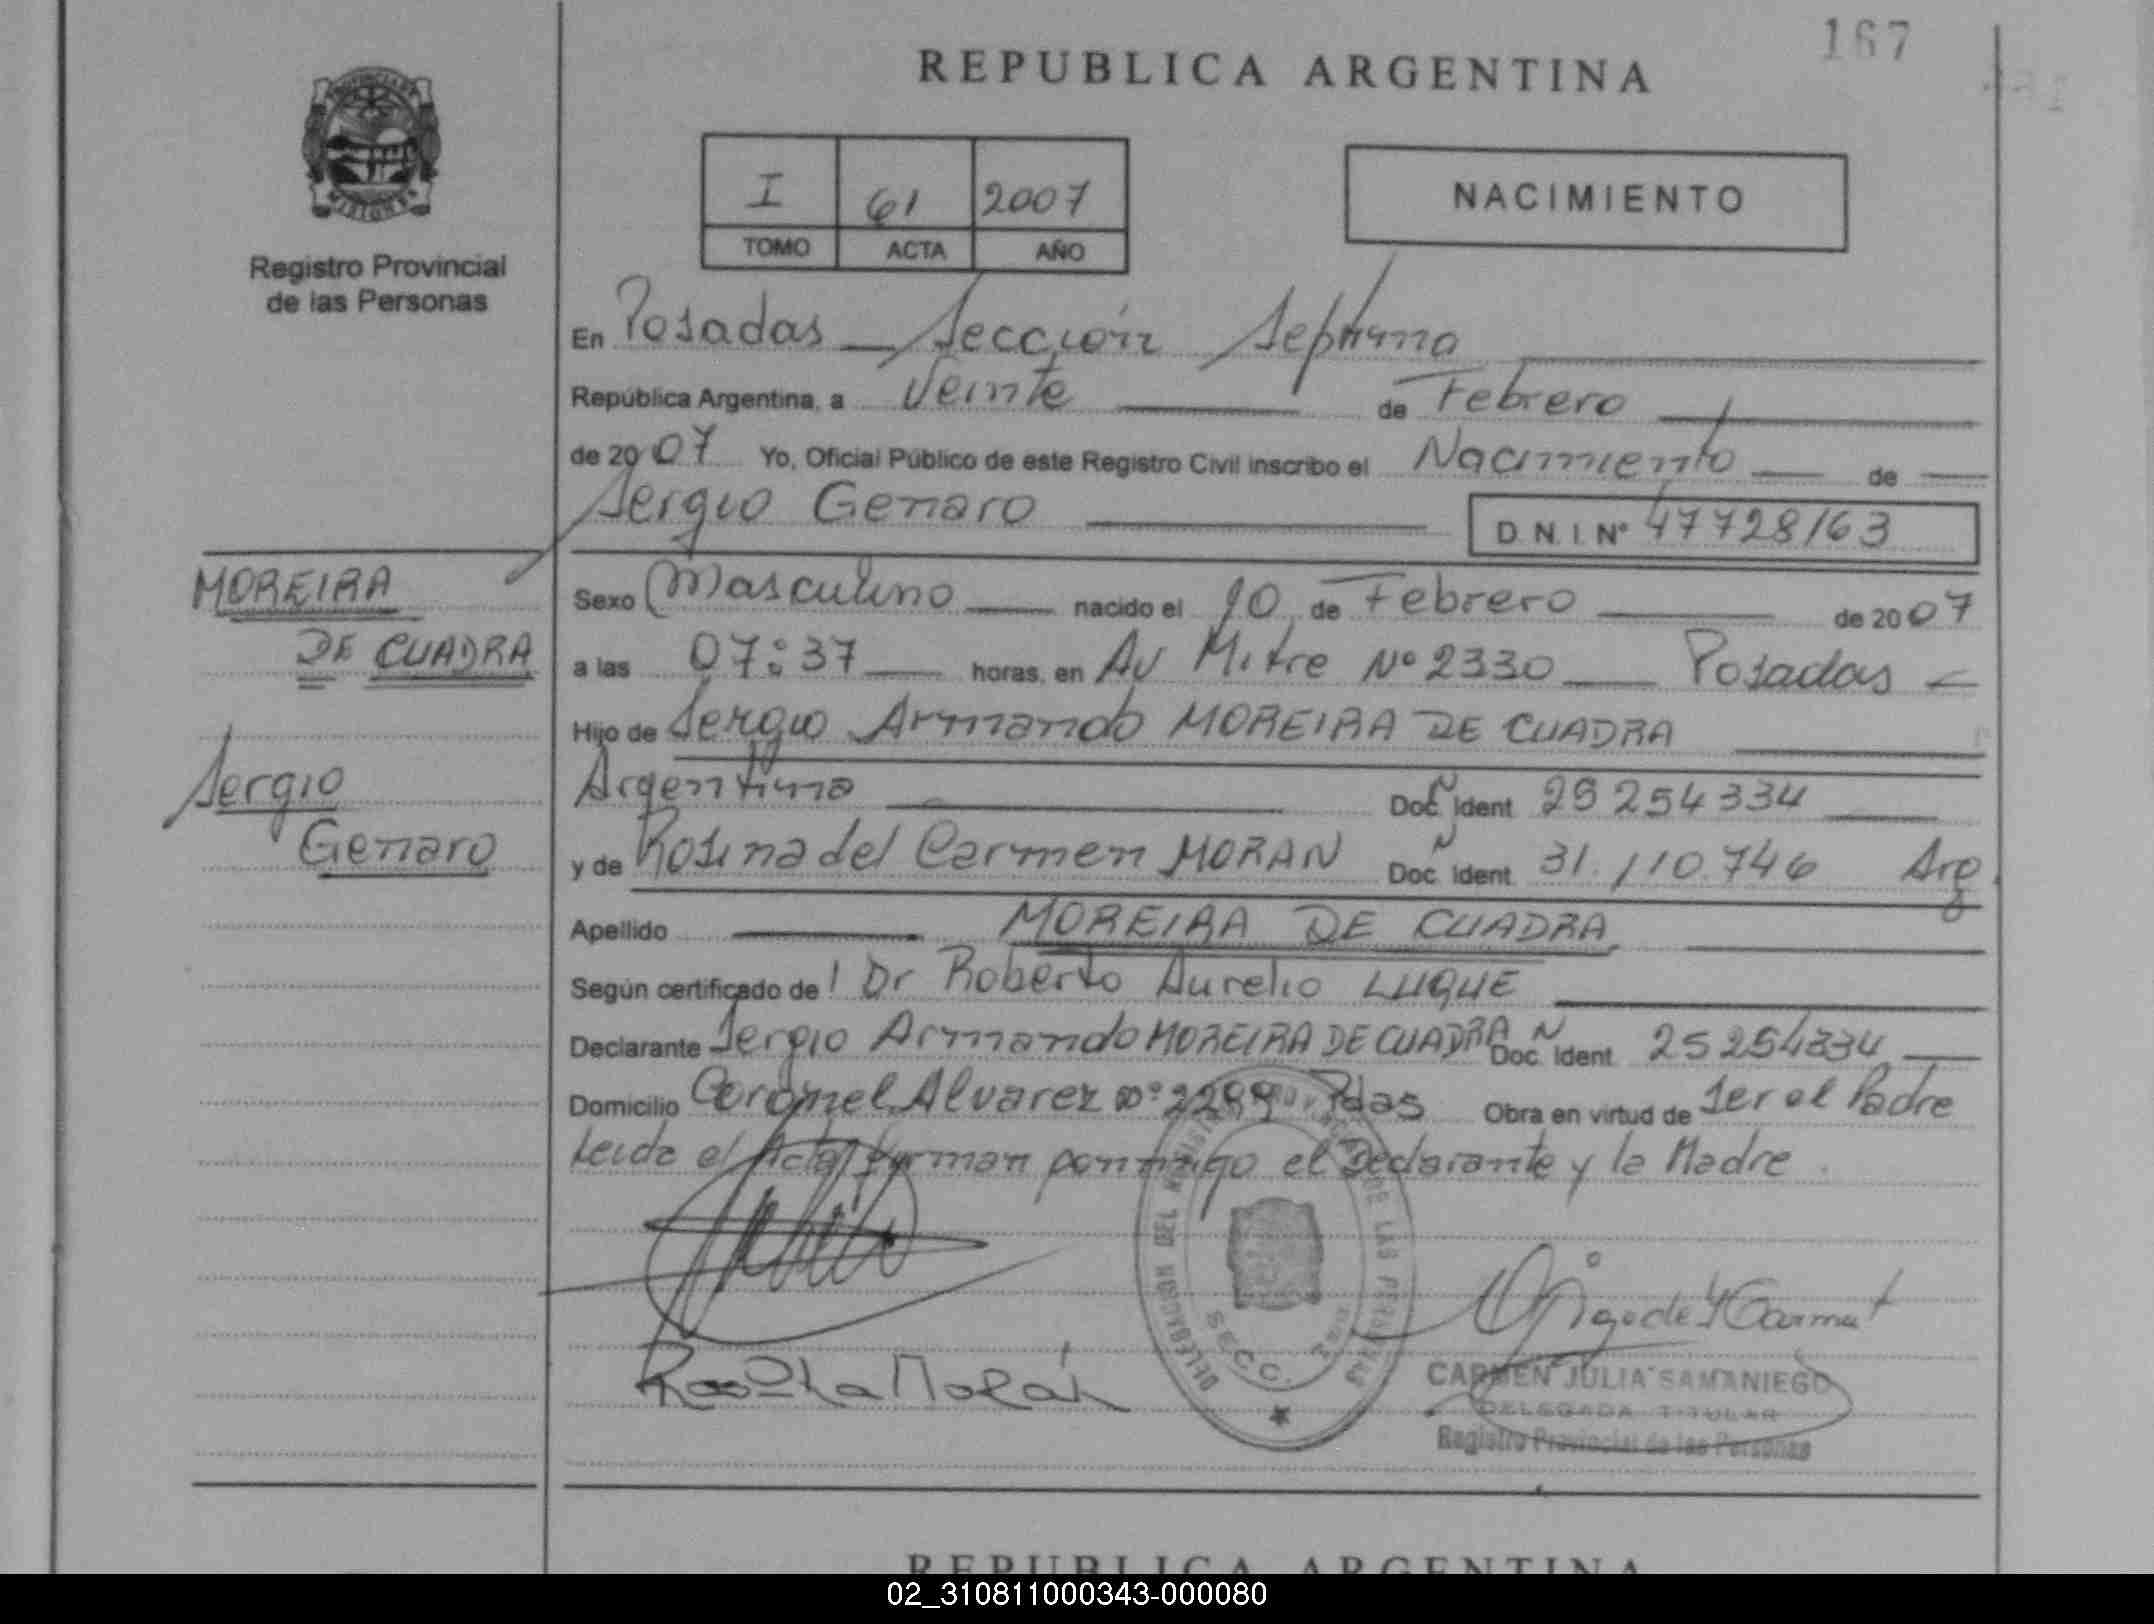 167
REPUBLICA ARGENTINA
PROVINCIA DE
MISIONES
Registro Provincial
de las Personas
I 61 2007
TOMO ACTA AÑO
NACIMIENTO
En Posadas — Sección Septima
República Argentina, a Veinte de Febrero
de 2007 Yo, Oficial Público de este Registro Civil inscribo el Nacimiento de
Sergio Genaro D.N.I. Nº 47728163
MOREIRA
DE CUADRA
Sergio
Genaro
Sexo Masculino nacido el 10 de Febrero de 2007
a las 07:37 horas, en Av Mitre Nº 2330 Posadas
Hijo de Sergio Armando MOREIRA DE CUADRA
Argentina Doc. Ident 25254334
y de Rosina del Carmen MORAN Doc. Ident. 31.110.746 Arg
Apellido MOREIRA DE CUADRA
Según certificado del Dr Roberto Aurelio LUQUE
Declarante Sergio Armando MOREIRA DE CUADRA Doc. Ident. 25254334
Domicilio Coronel Alvarez Nº 2299 Pdas Obra en virtud de Ser el Padre
Leida el Acta firman conmigo el Declarante y la Madre.
DELEGACION DEL REGISTRO PROVINCIAL DE LAS PERSONAS
SECC.
Morán
CARMEN JULIA SAMANIEGO
DELEGADA TITULAR
Registro Provincial de las Personas
REPUBLICA ARGENTINA
02_310811000343-000080